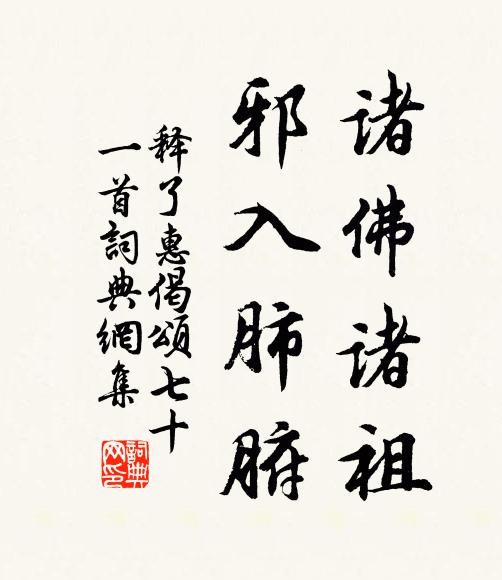 诸佛诸祖
邪入肺腑
释了惠偈颂七十
一首詞典網集
詞典网印